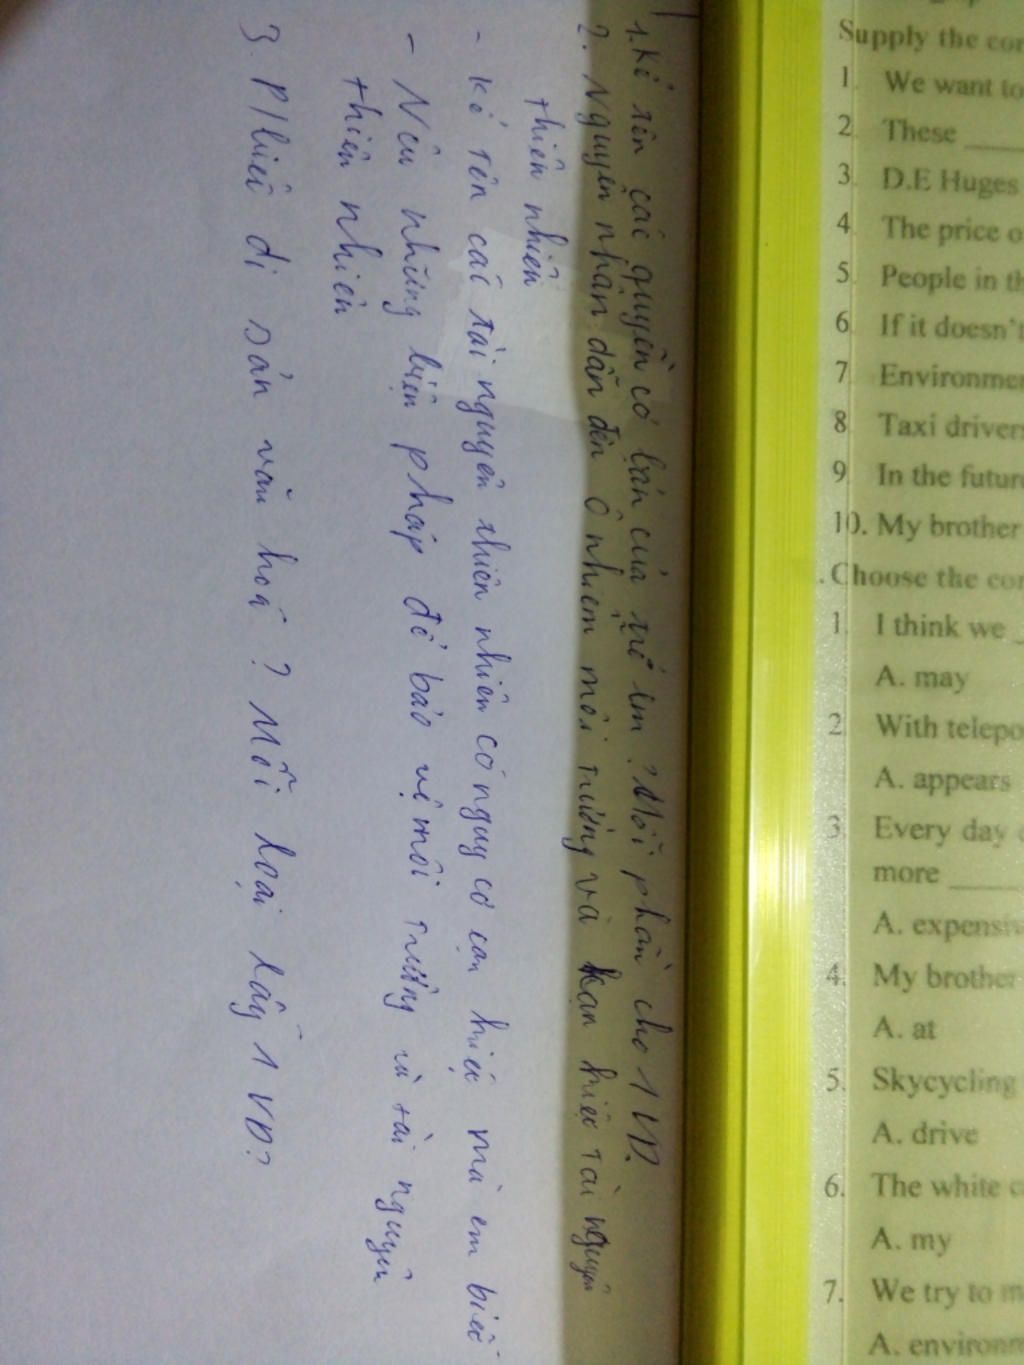 1. Kể tên các quyền cơ bản của trẻ em? Mỗi phần cho 1 VD.
2. Nguyên nhân dẫn đến ô nhiễm môi trường và cạn kiệt tài nguyên
thiên nhiên
- Kể tên các tài nguyên thiên nhiên có nguy cơ cạn kiệt mà em biết
- Nêu những biện pháp để bảo vệ môi trường và tài nguyên
thiên nhiên
3. P/biệt di sản văn hoá? Mỗi loại lấy 1 VD?
Supply the
1. We want to
2. These ____
3. D.E Huges
4. The price
5. People in
6. If it doesn't
7.
8. Taxi
9. In the
10. My brother
Choose the
1. I think we
A. may
2. With
A. appears
3. Every day
more ____
A.
4. My brother
A. at
5. Skycycling
A. drive
6. The white
A. my
7. We try to
A.